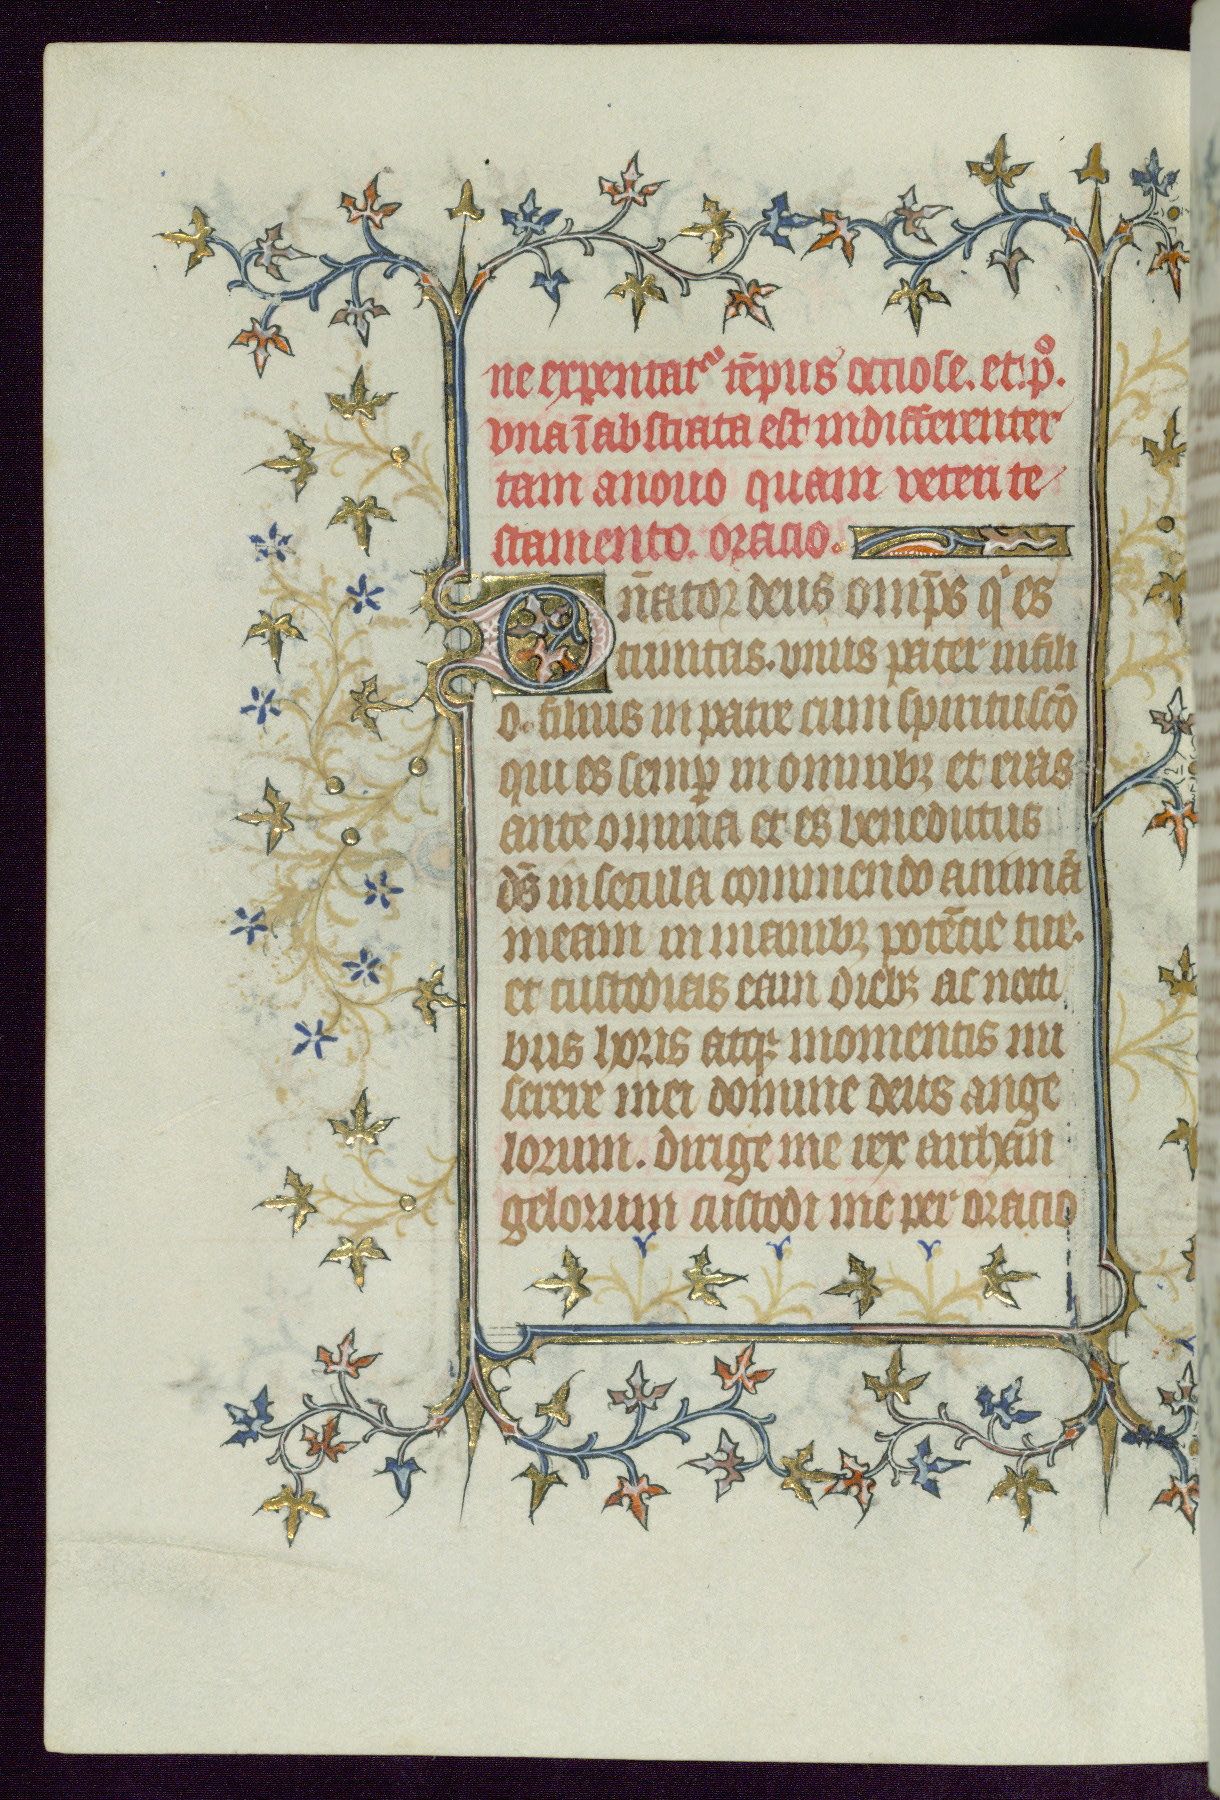 ne expentatᷣ tēpus occiose. et p̊.
vna ī abstrata est indifferenter
tam a nouo quam veteri te
stamento. oracio.
Dn̄ator deus omp̄s qͥ es
trinitas. vnus pater in fili
o. filius in patre cum spiritu sc̄o
qui es semꝑ in omnibꝫ et eras
ante omnia et es benedictus
ds̄ in secula commendo animā
meam in manibꝫ potēcie tue.
et custodias eam diebꝫ ac nocti
bus horis atqꝫ momentis mi
serere mei domine deus ange
lorum. dirige me rex archān
gelorum custodi me per oracio